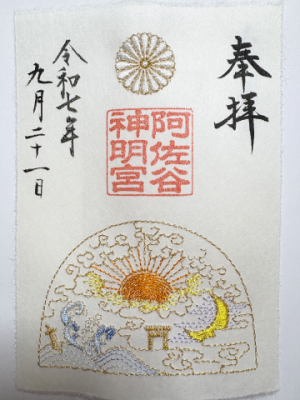 奉拝
阿佐谷
神明宮
令和七年
九月二十一日